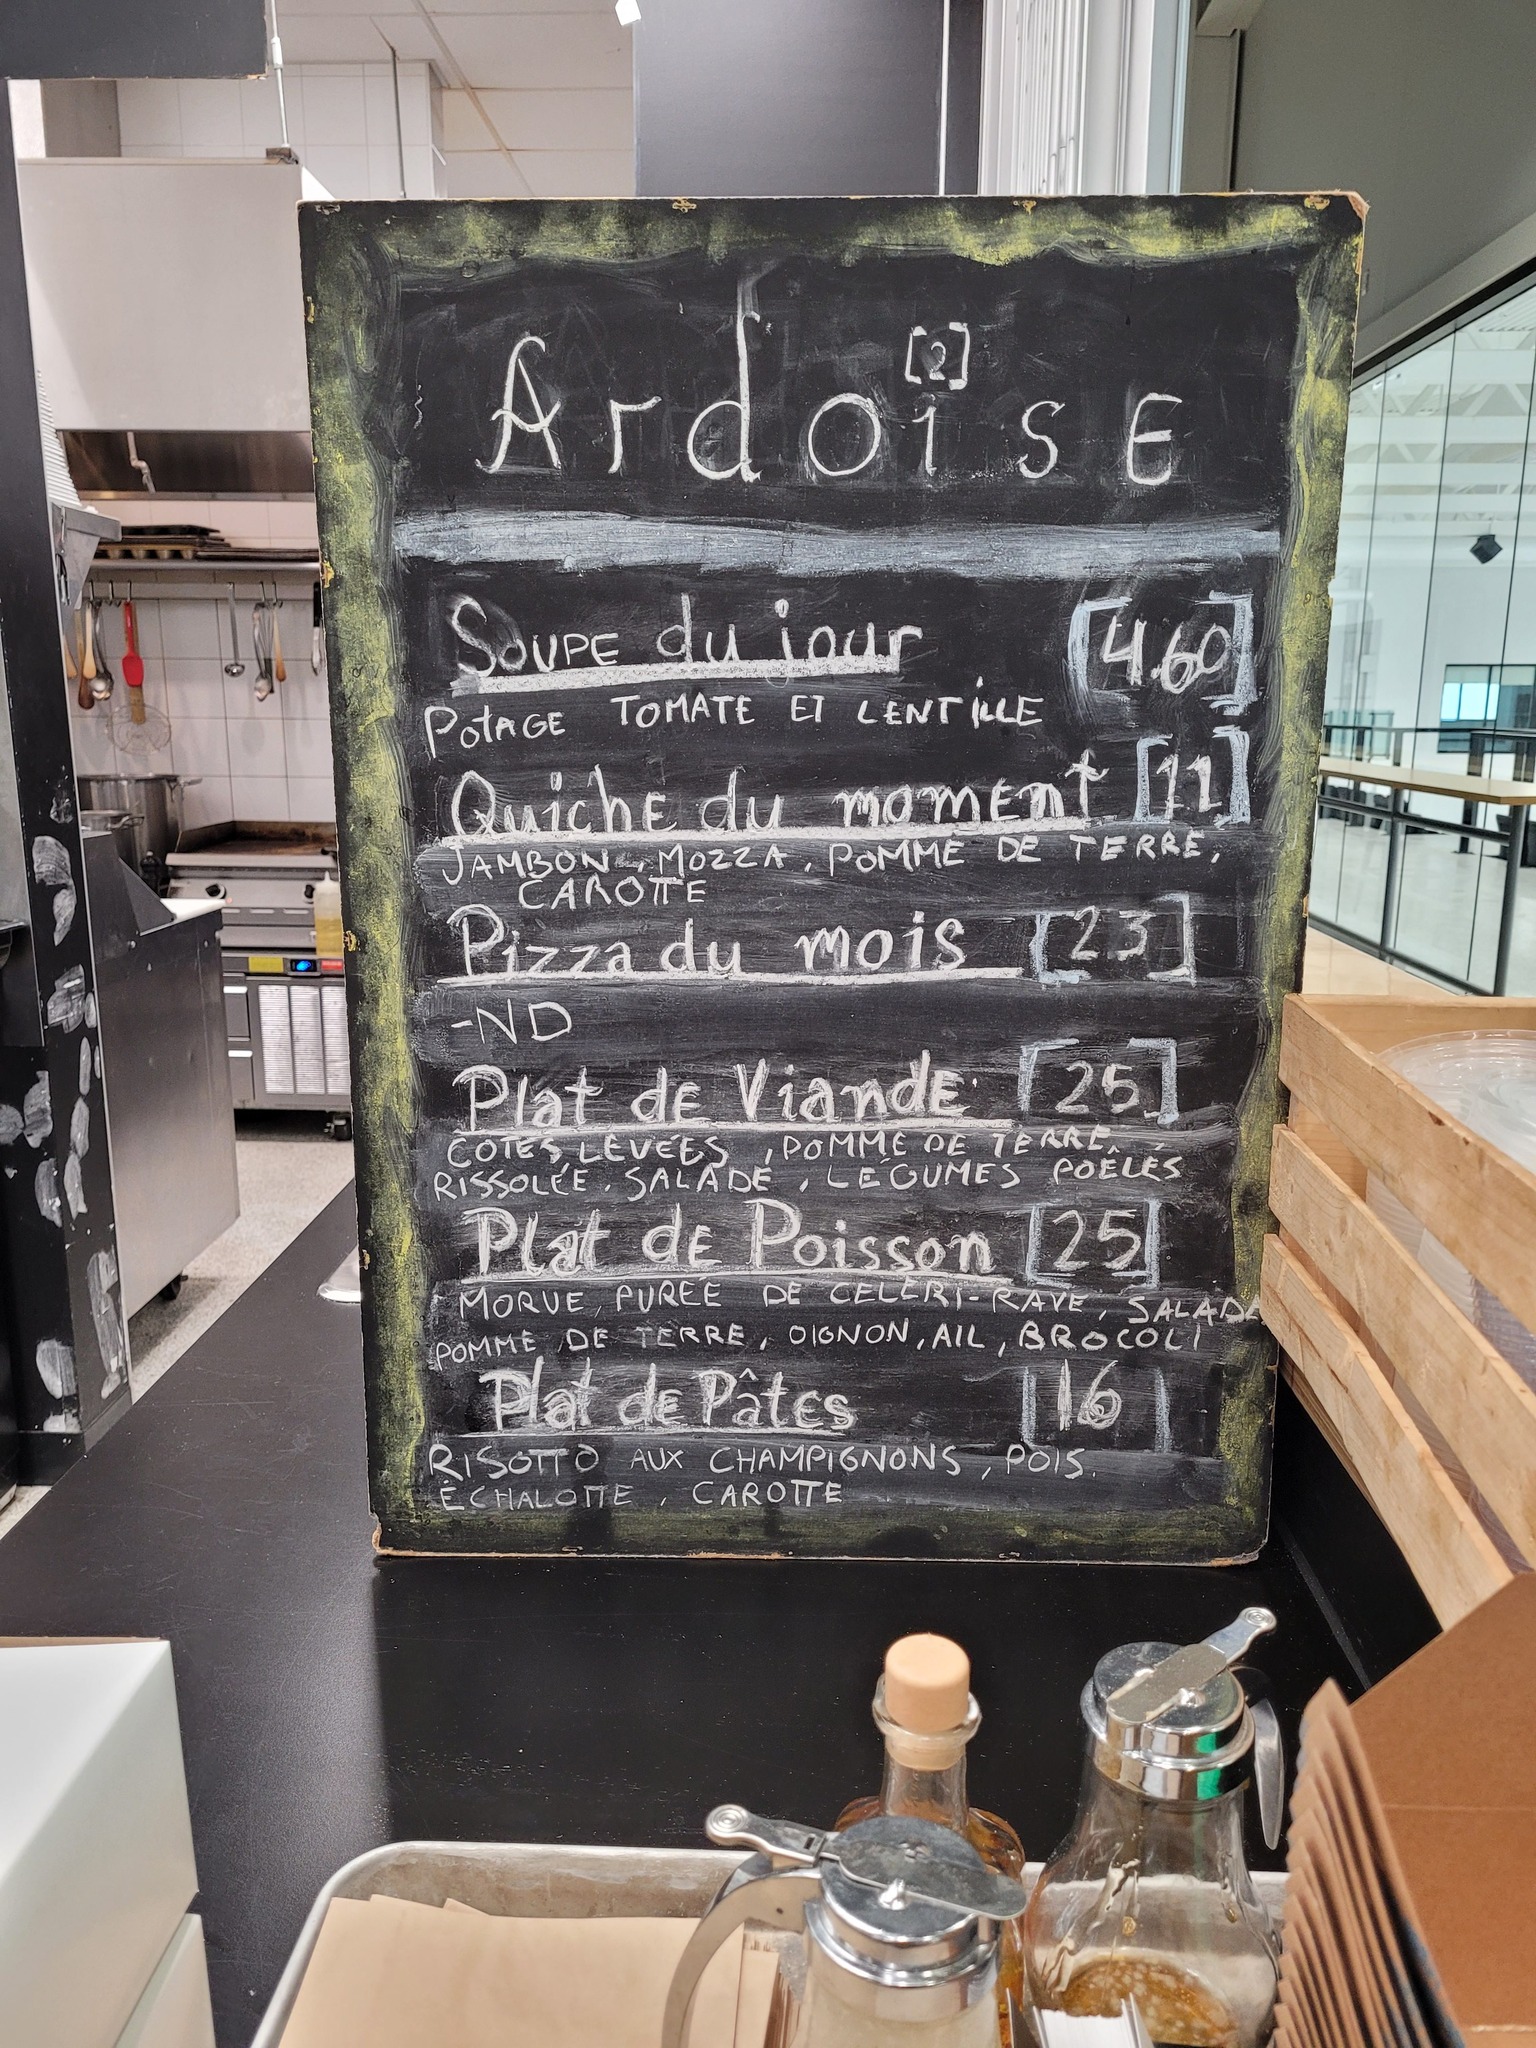 [2]
ArdoisE
SoUPE du jour [4.60]
PotAGE TOMATE ET LENTILLE
QuichE du momEnt [11]
JAMBON, MOZZA, POMME DE TERRE,
CAROTTE
Pizza du mois [23]
-ND
Plat dE ViandE [25]
CÔTES LEVÉES, POMME DE TERRE,
RISSOLÉE, SALADE, LÉGUMES POÊLÉS
Plat dE Poisson [25]
MORUE, PURÉE DE CÉLERI-RAVE, SALADE
POMME DE TERRE, OIGNON, AIL, BROCOLI
Plat de Pâtes [16]
RISOTTO AUX CHAMPIGNONS, POIS,
ÉCHALOTTE, CAROTTE